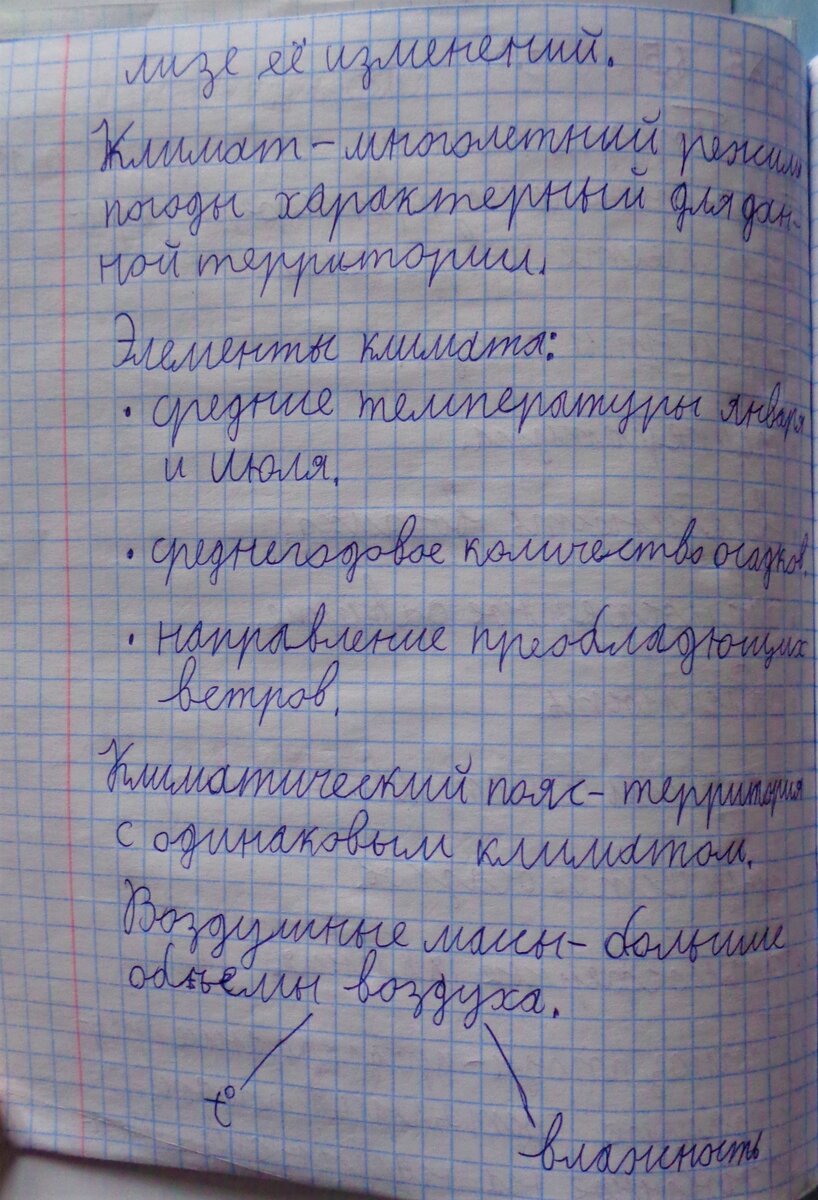 лизе её изменений.
Климат - многолетний режим
погоды характерный для дан-
ной территории.
Элементы климата:
• средние температуры января
и июля.
• среднегодовое количество осадков.
• направление преобладющих
ветров.
Климатический пояс - территория
с одинаковым климатом.
Воздушные массы - большие
объемы воздуха.
t°
влажность